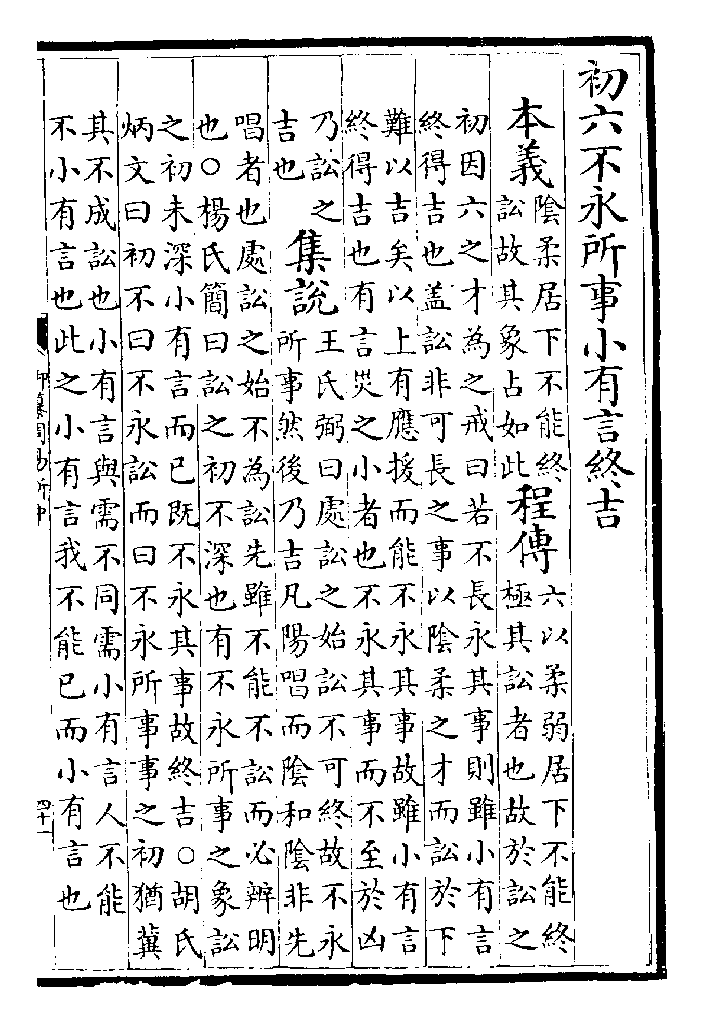 初六不永所事小有言終吉
本義
陰柔居下不能終
訟故其象占如此
程傳
六以柔弱居下不能終
極其訟者也故於訟之
初因六之才為之戒曰若不長永其事則雖小有言
終得吉也盖訟非可長之事以陰柔之才而訟於下
難以吉矣以上有應援而能不永其事故雖小有言
終得吉也有言災之小者也不永其事而不至於凶
乃訟之
吉也
集說
王氏弼曰處訟之始訟不可終故不永
所事然後乃吉凡陽唱而陰和陰非先
唱者也處訟之始不為訟先雖不能不訟而必辨明
也○楊氏簡曰訟之初不深也有不永所事之象訟
之初未深小有言而已既不永其事故終吉○胡氏
炳文曰初不曰不永訟而曰不永所事事之初猶冀
其不成訟也小有言與需不同需小有言人不能
不小有言也此之小有言我不能已而小有言也
御纂周易折中
四十一